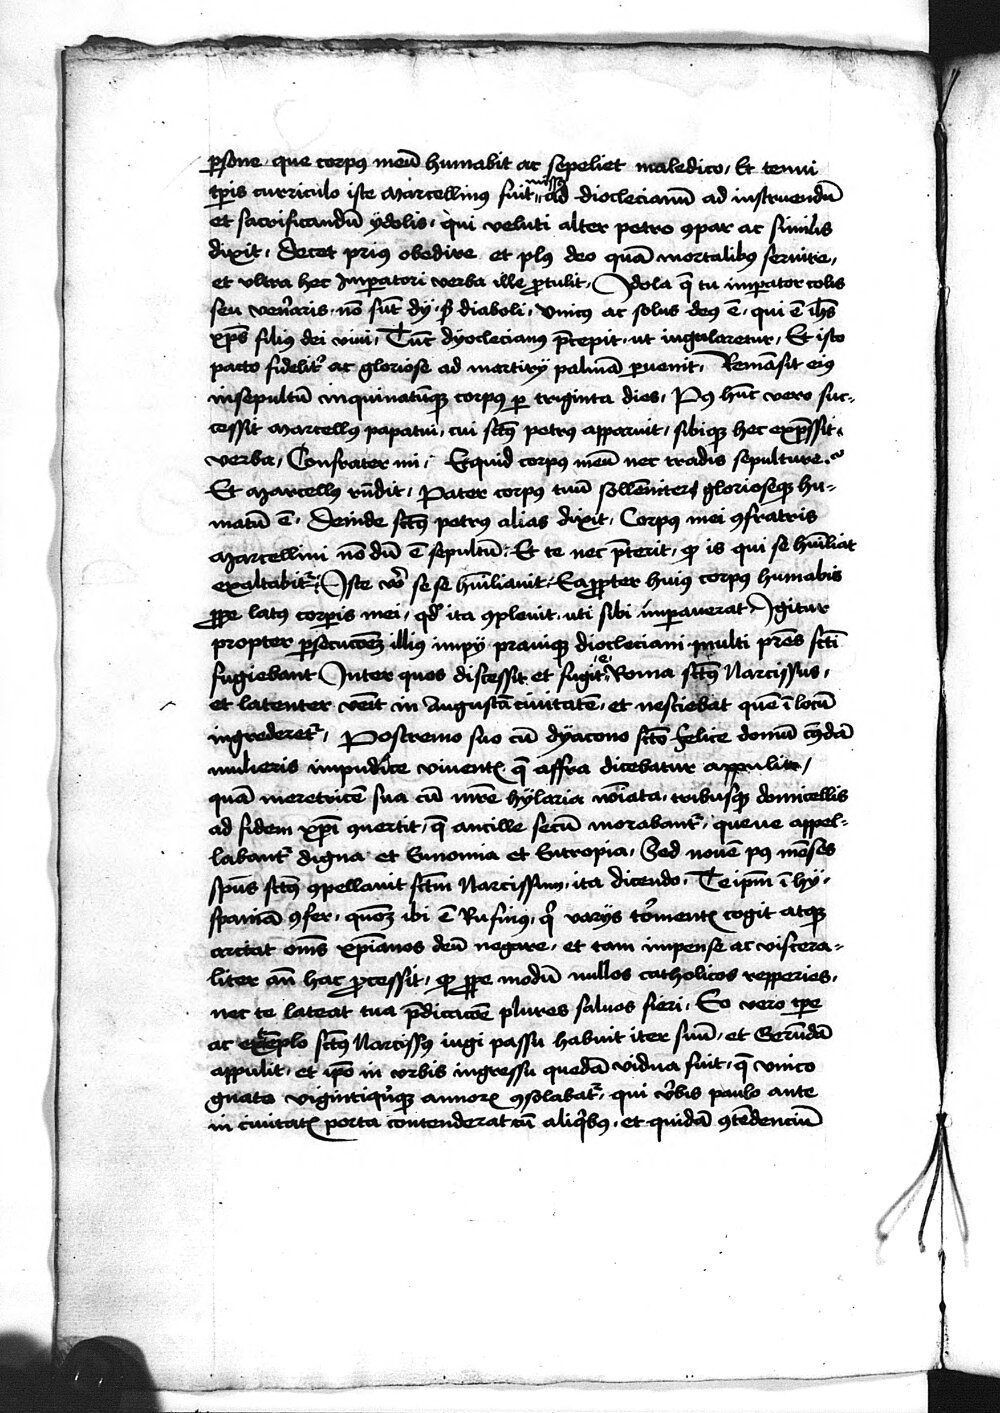 psone. que corpus meū humabit ac sepeliet maledico, Et tenui
tpis curriculo iste Marcellinus fuit missus ad dioclecianū ad instruendū
et sacrificandū ydolis. qui veluti alter petro 9par ac similis
dixit. Decet prius obedire et plus deo quā mortalibus seruire,
et vltra hec Imperatori verba ille ptulit, Idola q̄ tu imperator colis
seu veneraris. nō sūt dy. s; diaboli. vnicus ac solus deus ē. qui ē ihs
xps filius dei viui, Tūc dyoclecianus p̄cepit. ut iugularetur, Et isto
pacto fidelit ac gloriose ad martiry palmā puenit, Remāsit eius
insepultū inquinatūq; corpus p triginta dies, Post hūc vero suc-
cessit Marcellus papatui, cui sctus petrus apparuit, sibiq; hec exp̄ssit
verba, Confrater mi, Equid corpus meū nec tradis sepulture.
Et Marcellus rn̄dit, Pater corpus tuū sollēniter glorioseq; hu-
matū ē. Deinde sctus petrus alias dixit, Corpus mei 9fratris
Marcellini nō dū ē sepultū. Et te nec p̄terit, q is qui se humiliat
exaltabit. Iste vero se se humiliauit. Eappter huius corpus humabis
ppe latus corpis mei, qd ita 9pleuit. uti sibi imperauerat. Igitur
propter psecucōem illius impy prauiq; diocleciani multi p̄res scti
fugiebant. Inter quos discessit et fugit e Roma sctus Narcissus,
et latenter venit in Augustā ciuitatē, et nesciebat quē ī locū
ingrederet, Postremo suo cū dyacono scto Felice domū cuiusdā
mulieris impudice viuentis q̄ affra dicebatur appulit,
quā meretricē sua cū mre hylaria noiata. tribusq; domicellis
ad fidem xpi 9uertit, q̄ ancille secū morabant, queue appel-
labant digna et Eunomia et Eutropia, Sed nouē post mēses
spus sctus 9pellauit sctm Narcissum, ita dicendo, Te ipm ī hy-
spaniā 9fer. quoniam ibi ē Rufinus, q varys tormentis cogit atq;
arctat oms xpianos deū negare, et tam impense ac viscera-
liter an hac pcessit. q ppe modū nullos catholicos repperies,
nec te lateat tua p̄dicacōe plures saluos fieri. Eo vero tpe
ac extemplo sctus Narcissus iugi passu habuit iter suū, et Gerundā
appulit, et ipo in vrbis ingressu quedā vidua fuit, q̄ vnico
gnato vigintiquinq; annorum 9solabat, qui vrbis paulo ante
in ciuitatis porta contenderat cū aliqbus, et quidā 9tēdenciū